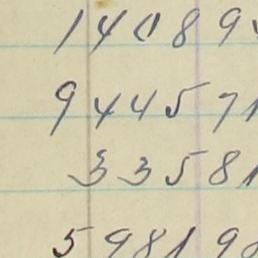 14089
944571
33581
59819